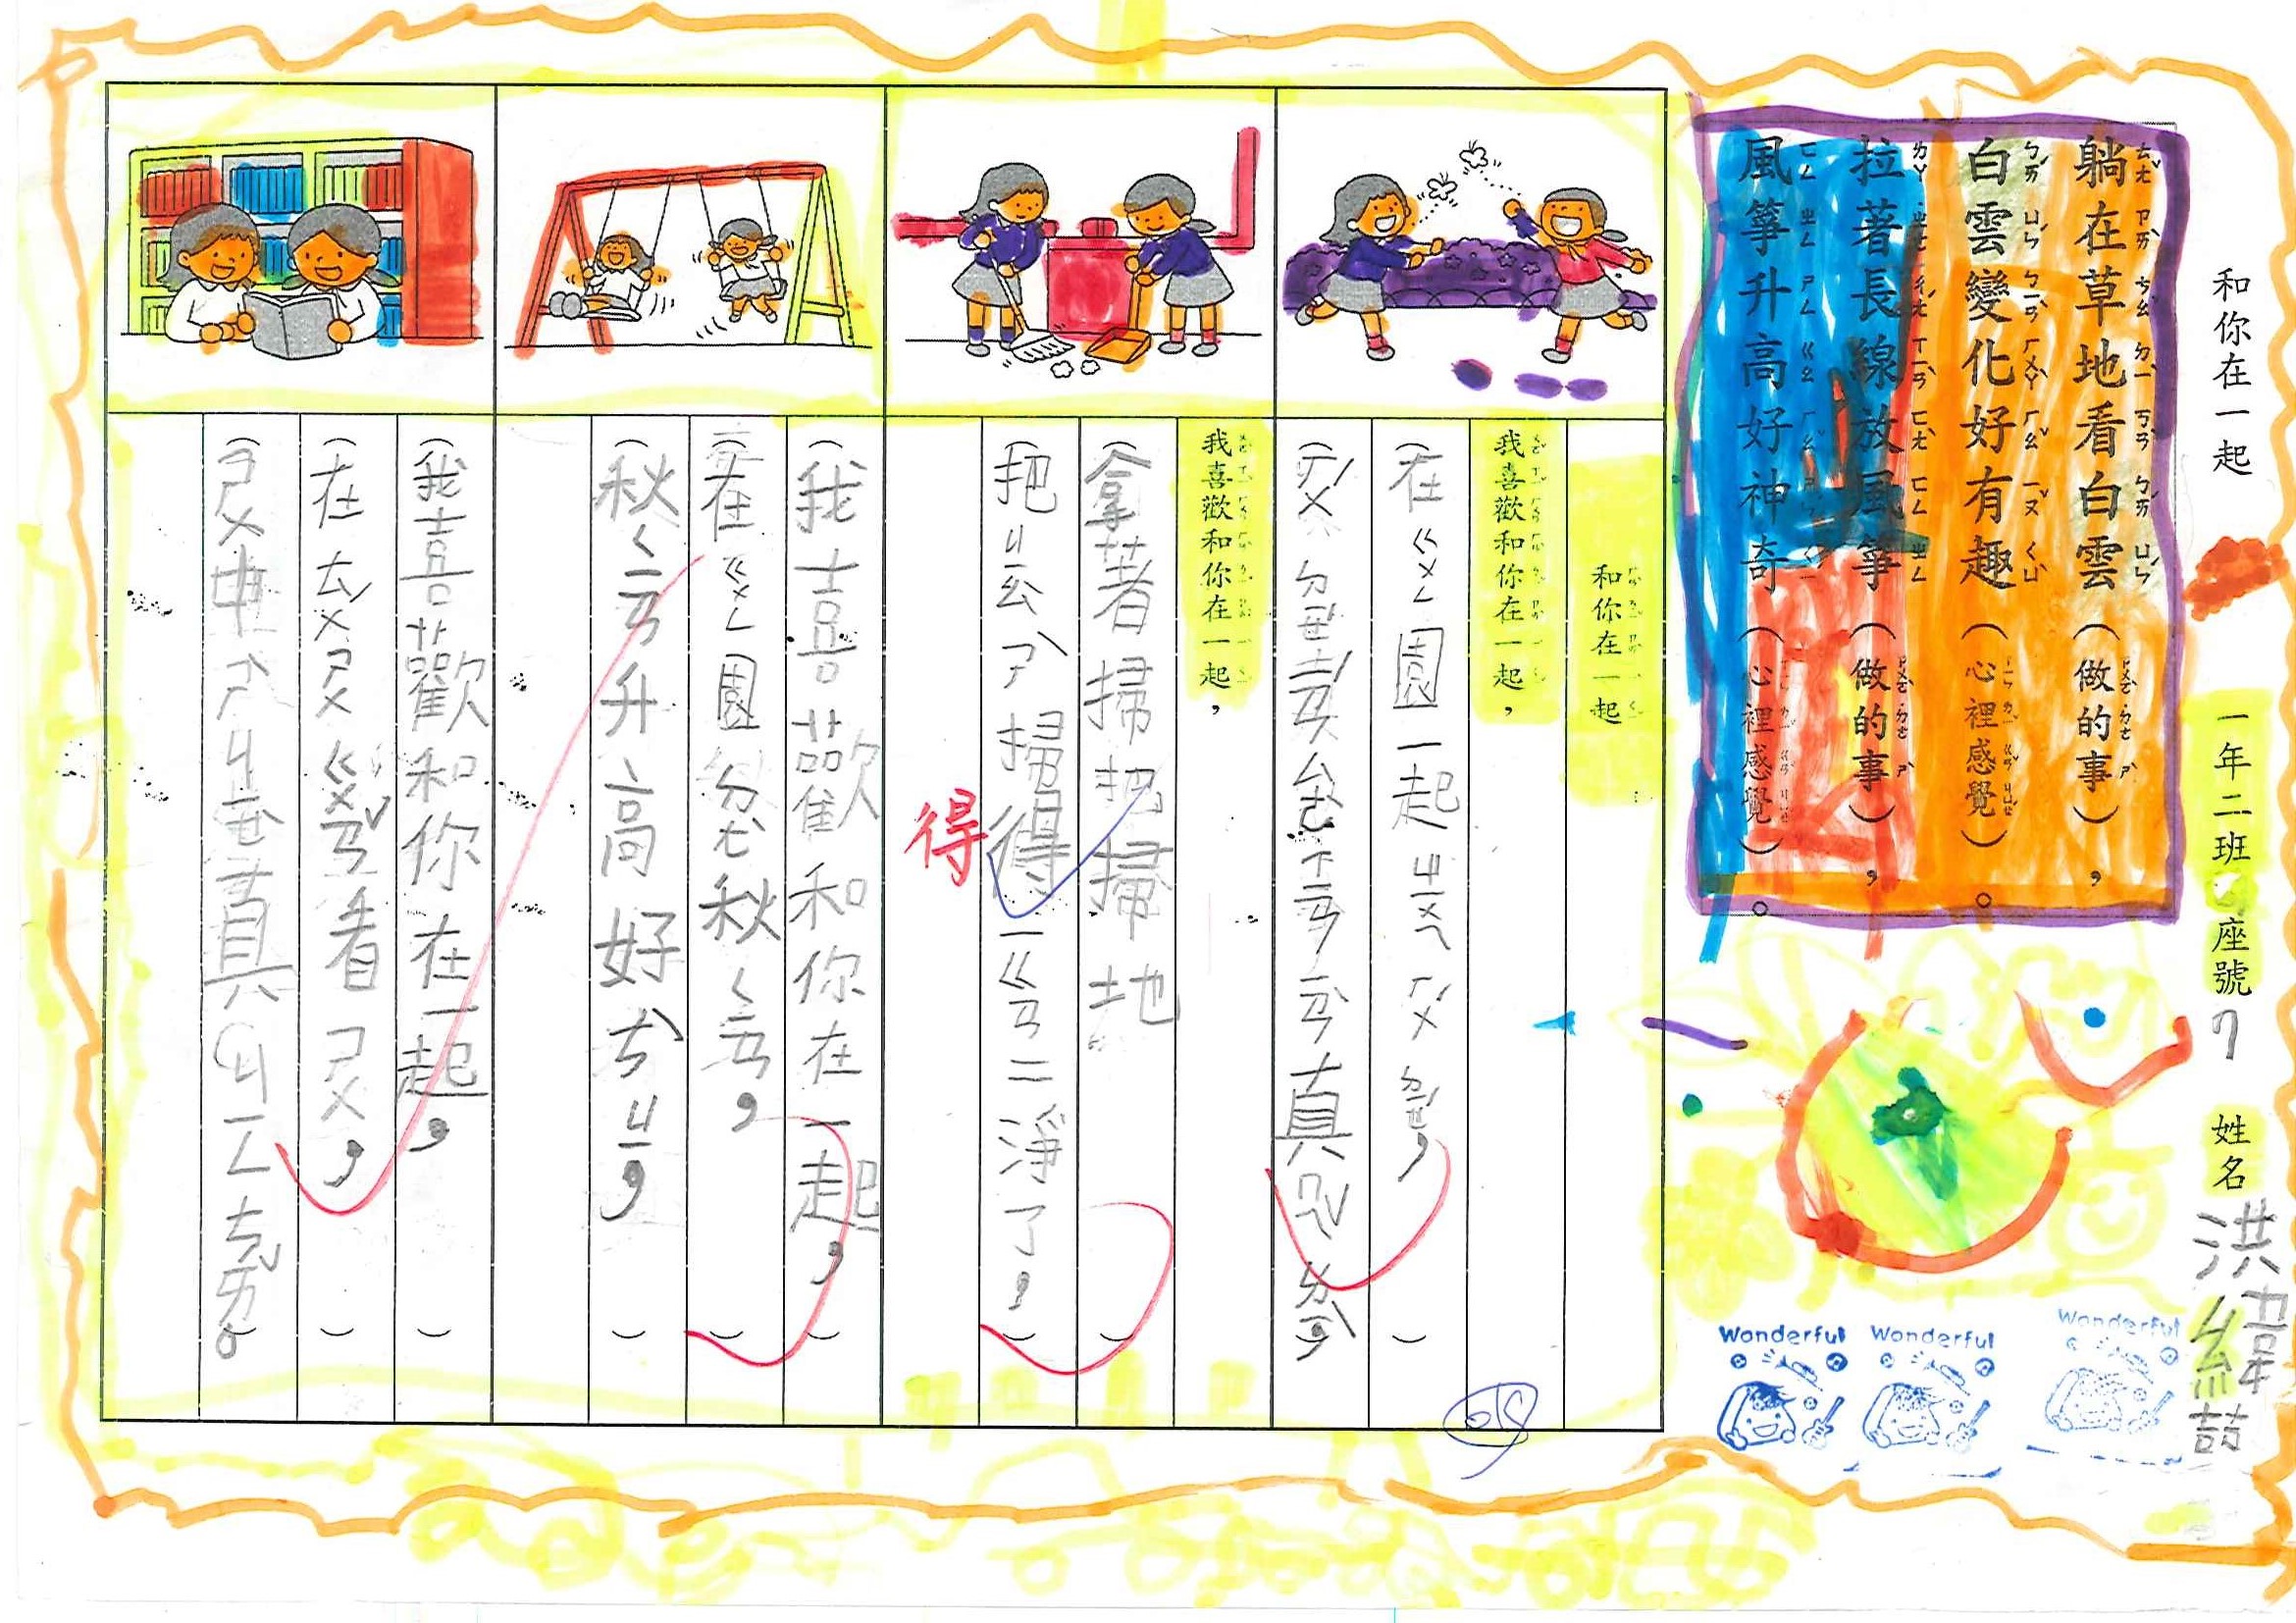 和你在一起
一年二班
座號7
姓名洪緯喆
躺在草地看白雲(做的事),
白雲變化好有趣(心裡感覺)。
拉著長線放風箏(做的事),
風箏升高好神奇(心裡感覺)。
和你在一起
我喜歡和你在一起,
(在ㄍㄨㄥ園一起ㄓㄨㄟ ㄏㄨˊ ㄉㄧㄝˊ,)
我喜歡和你在一起,
(拿著掃把掃地)
(把ㄐㄧㄠˋ ㄕˋ掃得ㄧˋ ㄍㄢ二淨了,)
得
(我喜歡和你在一起,)
(在ㄍㄨㄥ園ㄉㄤˋ秋ㄑㄧㄢ,)
(秋ㄑㄧㄢ升高好ㄘˋ ㄐㄧ,)
(我喜歡和你在一起,)
(在ㄊㄨˊ ㄕㄨ ㄍㄨㄢˇ看ㄕㄨ,)
Wonderful
Wonderful
Wonderful